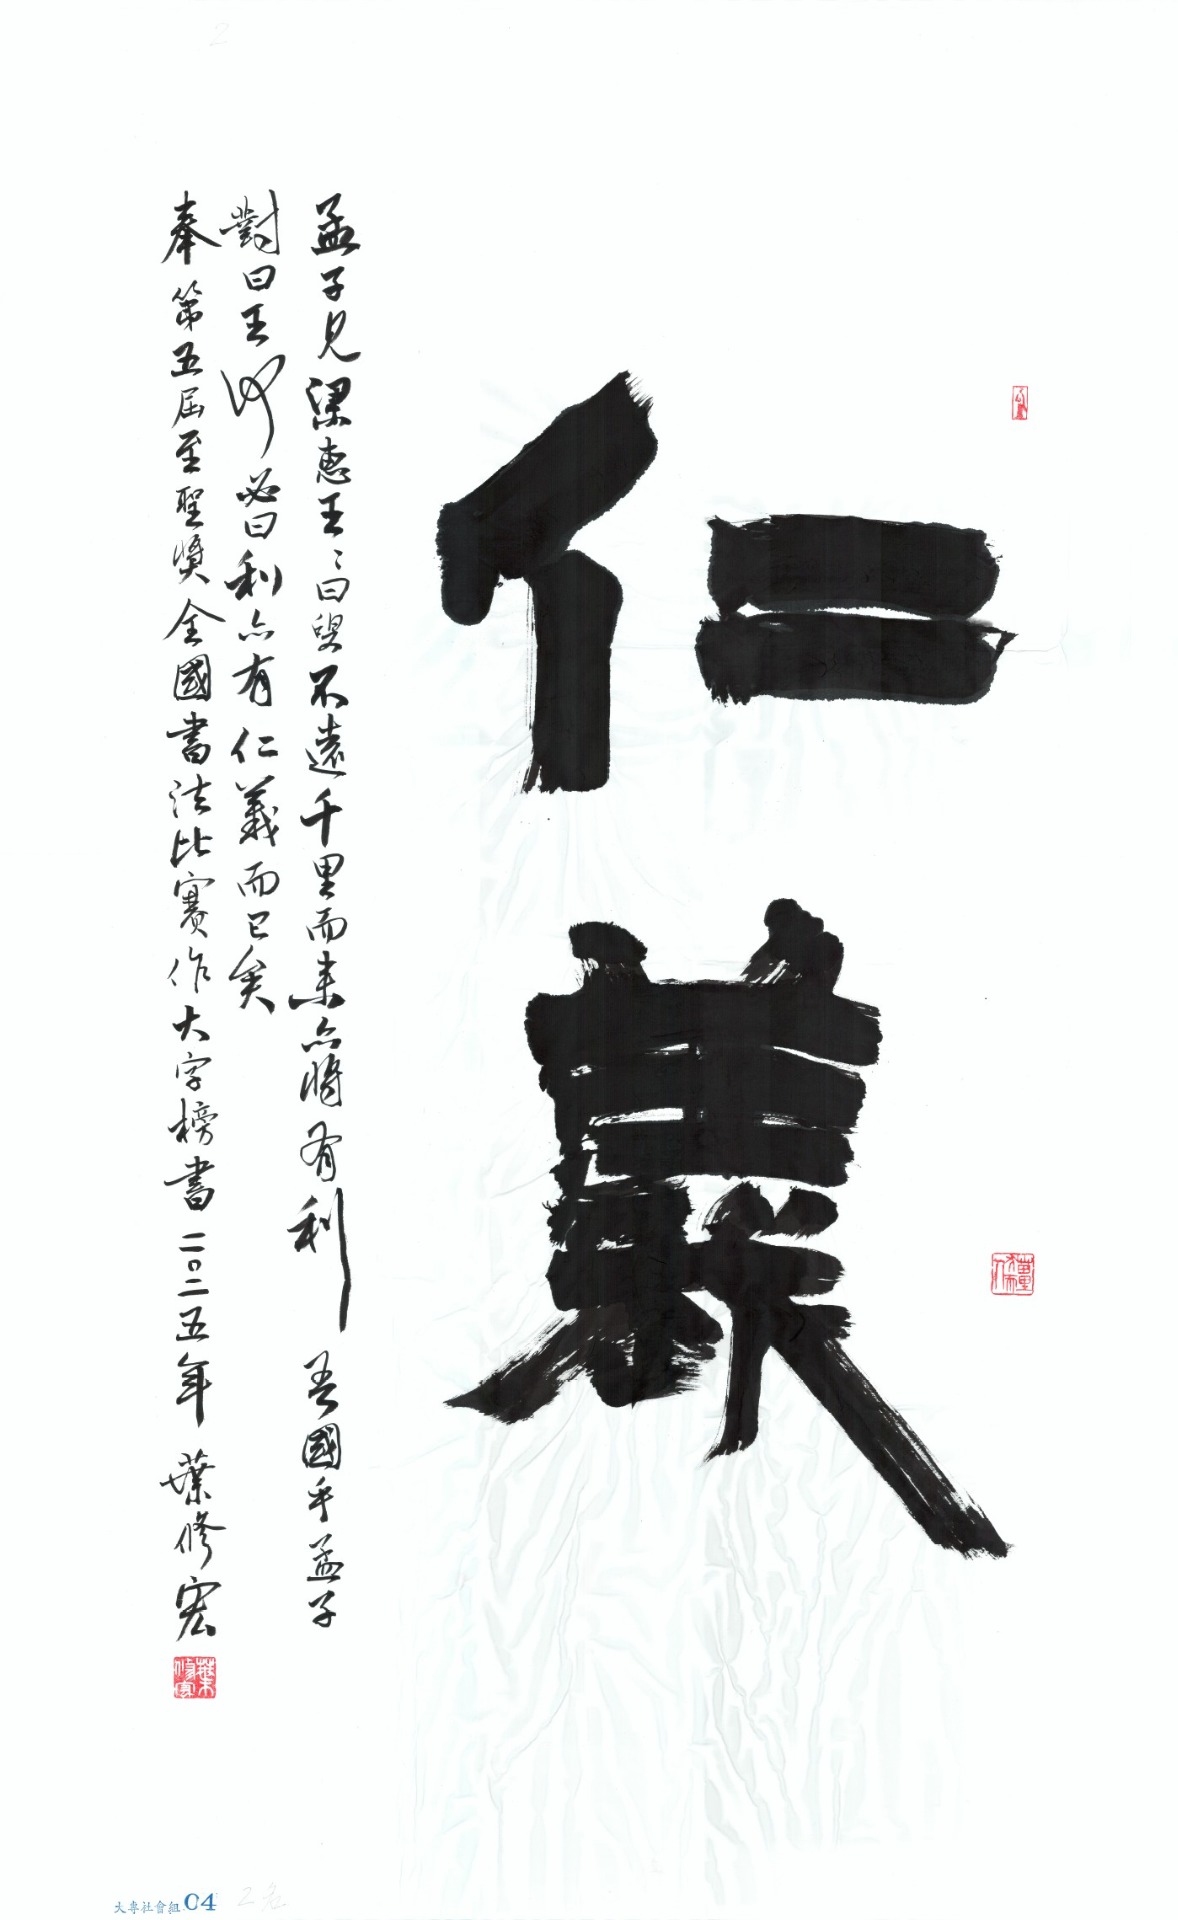 仁義
孟子見梁惠王〻曰叟不遠千里而來亦將有利吾國乎孟子
對曰王何必曰利亦有仁義而已矣
奉第五屆至聖獎全國書法比賽作大字榜書二〇二五年葉修宏
葉修宏
大專社會組 04
2名
2